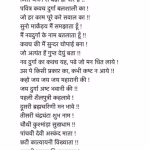 पवित्र कवच दुर्गा बलशाली का !
जो हर काम पूरे करे सवाल का !!
सुनो मारकंडेय मैं समझाता हूँ !
मैं नवदुर्गा के नाम बतलाता हूँ !!
कवच की मैं सुन्दर चोपाई बना !
जो अत्यंत हैं गुप्त देयुं बता !!
नव दुर्गा का कवच यह, पढे जो मन चित लाये !
उस पे किसी प्रकार का, कभी कष्ट न आये !!
कहो जय जय जय महारानी की !
जय दुर्गा अष्ट भवानी की !!
पहली शैलपुत्री कहलावे !
दूसरी ब्रह्मचरिणी मन भावे !!
तीसरी चंद्रघंटा शुभ नाम !
चौथी कुश्मांड़ा सुखधाम !!
पांचवी देवी अस्कंद माता !
छटी कात्यायनी विख्याता !!